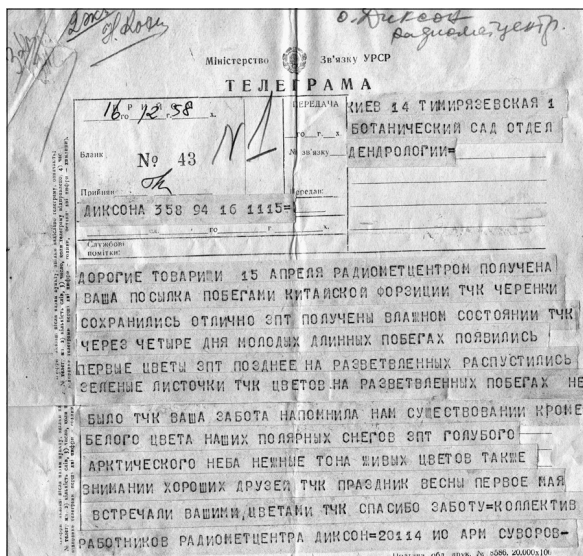 о. Диксон
радиометцентр.
Міністерство Зв'язку УРСР
ТЕЛЕГРАМА
16 го 12 г. 58 х.
Бланк № 43
N 1
Прийняв
ПЕРЕДАЧА
го г. х.
№ зв'язку
Передав:
КИЕВ 14 ТИМИРЯЗЕВСКАЯ 1
БОТАНИЧЕСКИЙ САД ОТДЕЛ
ДЕНДРОЛОГИИ=
ДИКСОНА 358 94 16 1115=
сл. го г. х.
Службові
помітки:
ДОРОГИЕ ТОВАРИЩИ 15 АПРЕЛЯ РАДИОМЕТЦЕНТРОМ ПОЛУЧЕНА
ВАША ПОСЫЛКА ПОБЕГАМИ КИТАЙСКОЙ ФОРЗИЦИИ ТЧК ЧЕРЕНКИ
СОХРАНИЛИСЬ ОТЛИЧНО ЗПТ ПОЛУЧЕНЫ ВЛАЖНОМ СОСТОЯНИИ ТЧК
ЧЕРЕЗ ЧЕТЫРЕ ДНЯ МОЛОДЫХ ДЛИННЫХ ПОБЕГАХ ПОЯВИЛИСЬ
ПЕРВЫЕ ЦВЕТЫ ЗПТ ПОЗДНЕЕ НА РАЗВЕТВЛЕННЫХ РАСПУСТИЛИСЬ
ЗЕЛЕНЫЕ ЛИСТОЧКИ ТЧК ЦВЕТОВ НА РАЗВЕТВЛЕННЫХ ПОБЕГАХ НЕ
БЫЛО ТЧК ВАША ЗАБОТА НАПОМНИЛА НАМ СУЩЕСТВОВАНИИ КРОМЕ
БЕЛОГО ЦВЕТА НАШИХ ПОЛЯРНЫХ СНЕГОВ ЗПТ ГОЛУБОГО
АРКТИЧЕСКОГО НЕБА НЕЖНЫЕ ТОНА ЖИВЫХ ЦВЕТОВ ТАКЖЕ
ВНИМАНИИ ХОРОШИХ ДРУЗЕЙ ТЧК ПРАЗДНИК ВЕСНЫ ПЕРВОЕ МАЯ
ВСТРЕЧАЛИ ВАШИМИ ЦВЕТАМИ ТЧК СПАСИБО ЗАБОТУ=КОЛЛЕКТИВ
РАБОТНИКОВ РАДИОМЕТЦЕНТРА ДИКСОН=20114 ИО АРМ СУВОРОВ-